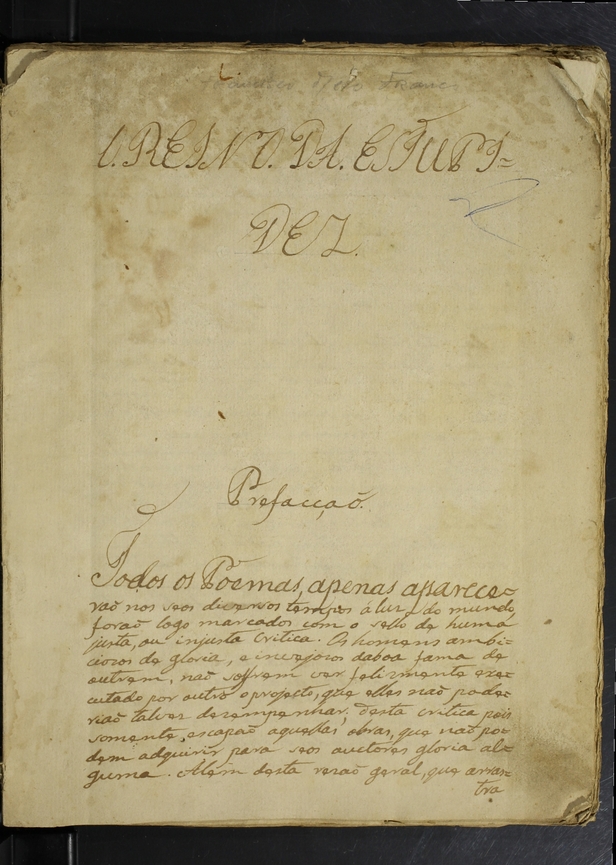 O. REINO. DA. ESTUPI=
DEZ.
Prefacçaõ.
Todos os Poemas, apenas aparece-
raõ nos seos diversos tempos á luz do mundo,
foraõ logo marcados com o sello de huma
justa, ou injusta critica. Os homens ambi-
ciozos de gloria, e invejozos daboa fama de
outrem, naõ soffrem ver felizmente exe-
cutado por outro oprojecto, que elles naõ pode-
riaõ talves dezempenhar. Desta critica pois
somente, escapaõ aquellas obras, que naõ po-
dem adquirir para seos auctores gloria al-
guma. Alem desta rasaõ geral, que arras-
tra